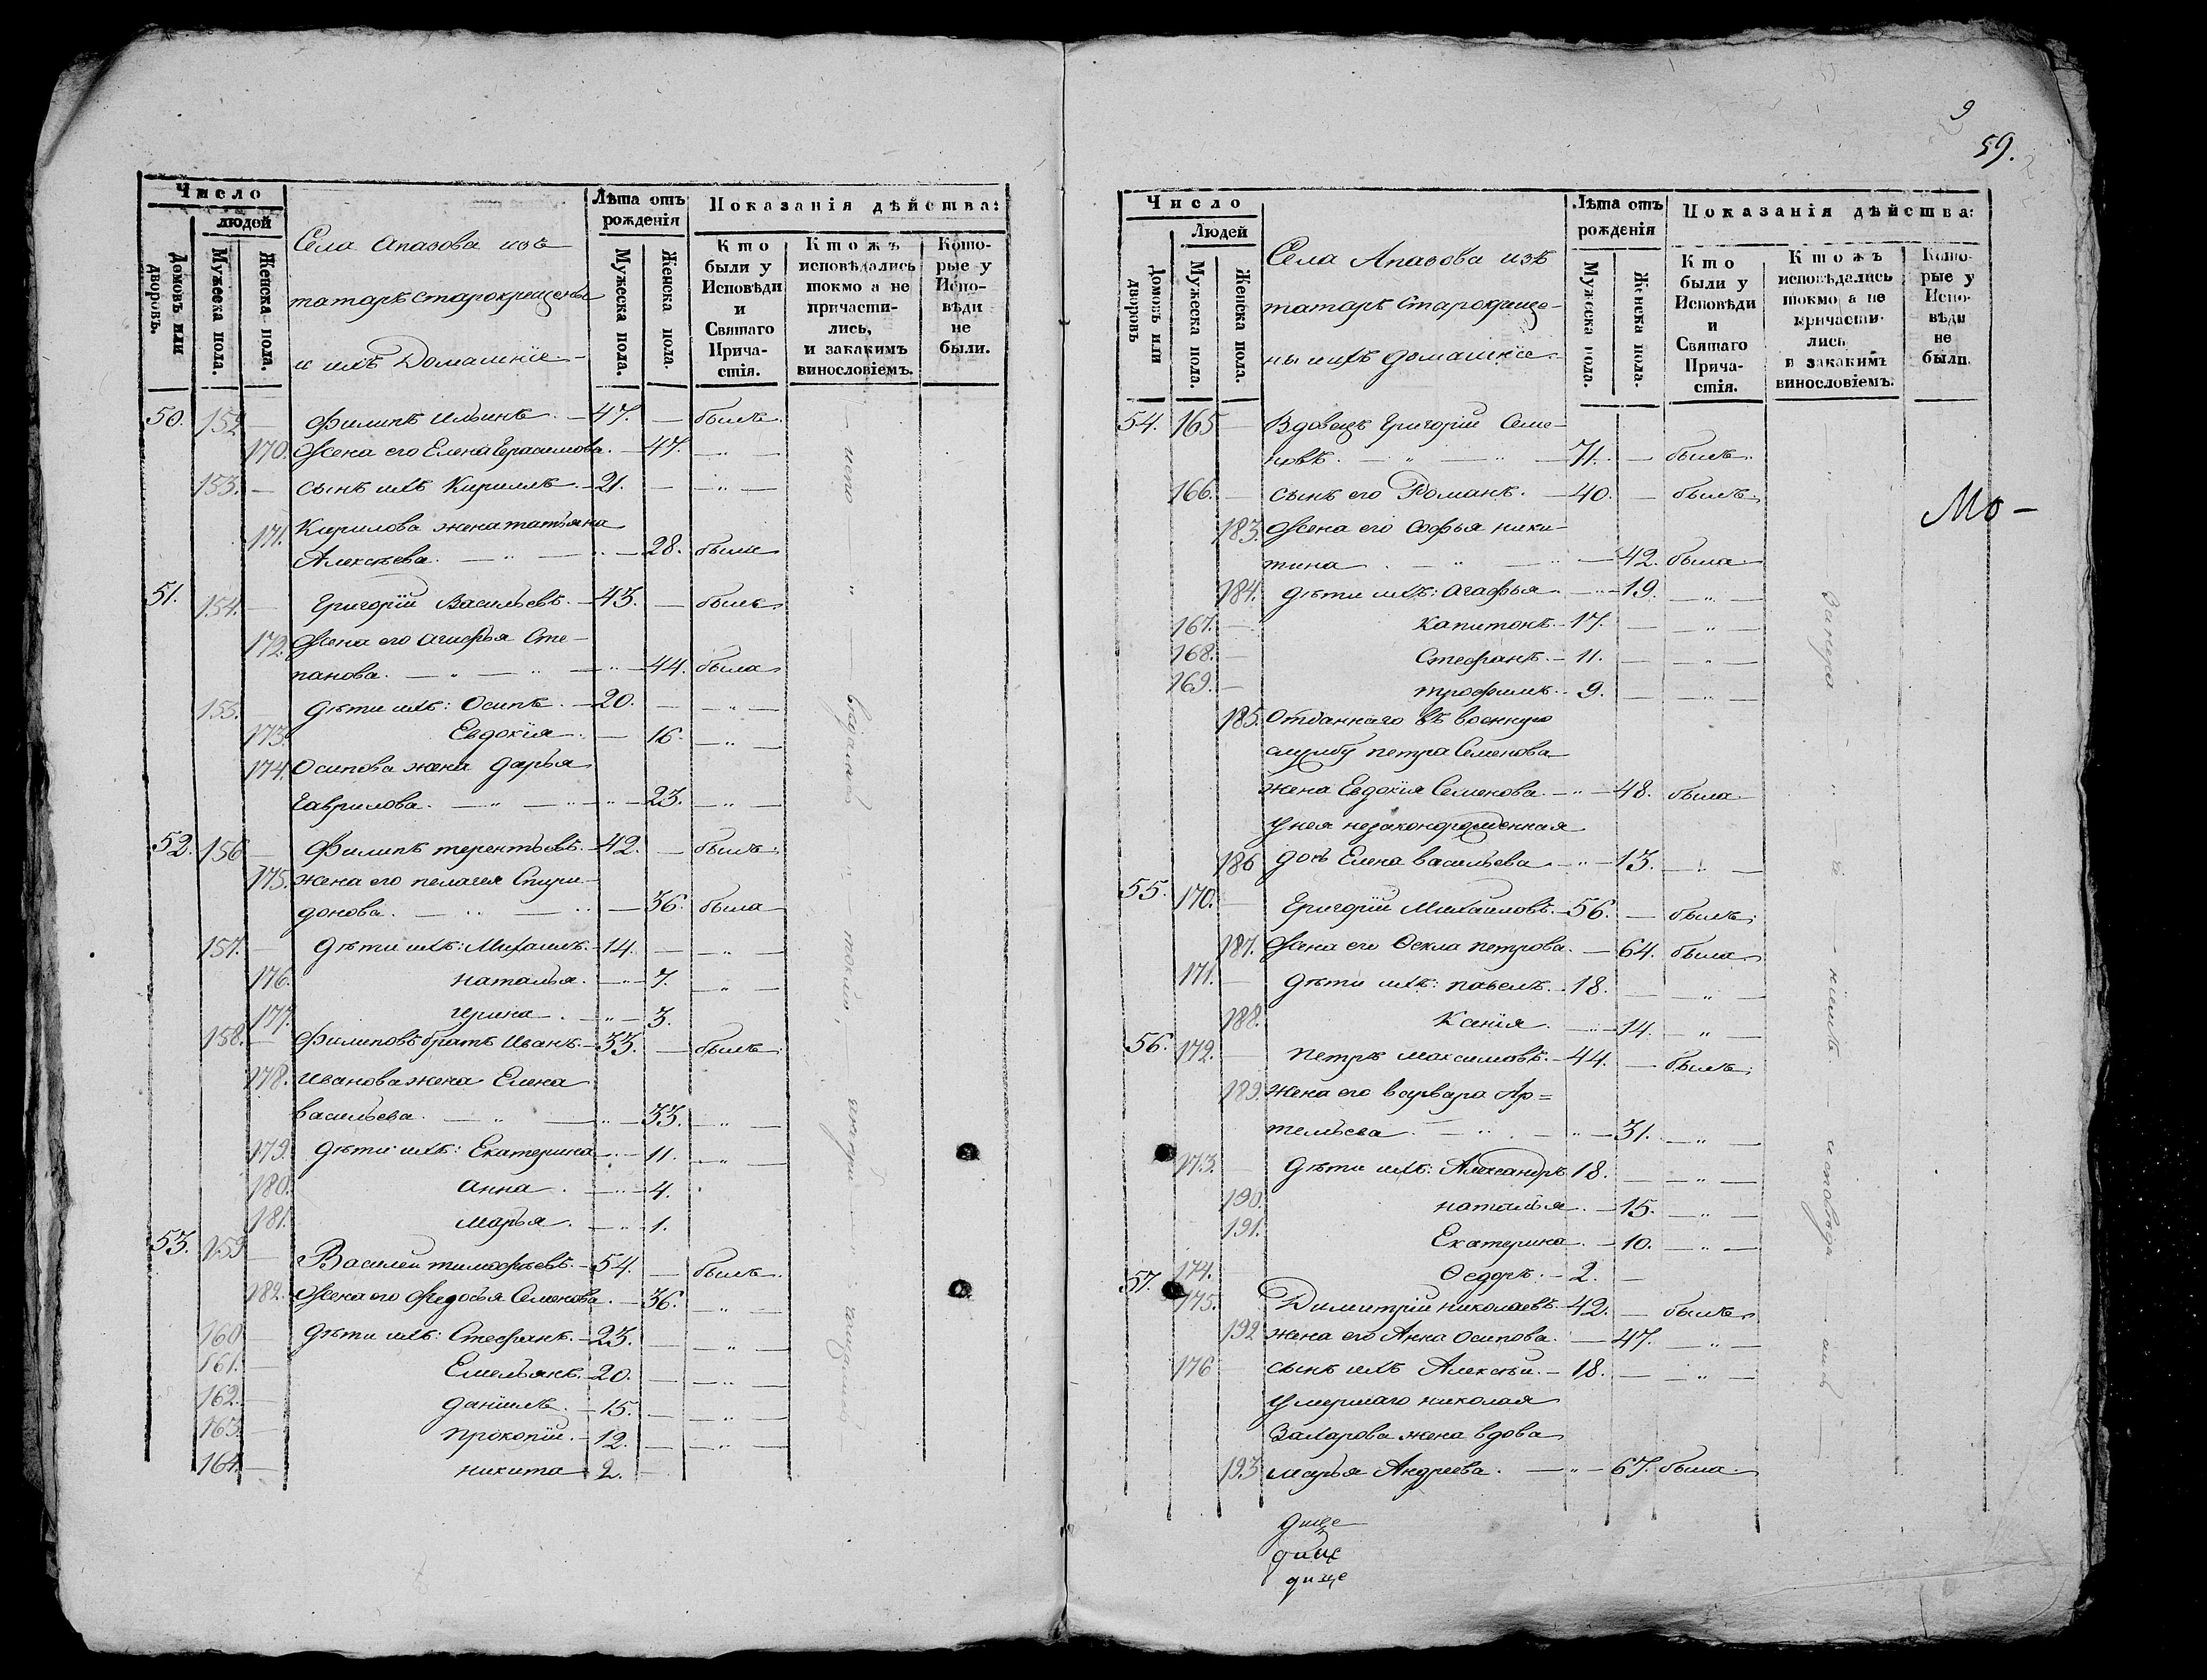 Число
людей
Домовъ или дворовъ.
Мужеска пола.
Женска пола.
Села Апазова изъ
татаръ старокрещены
и ихъ Домашніе.
Лѣта отъ рожденія
Мужеска пола.
Женска пола.
Показанія дѣйства:
Кто были у Исповѣди и Святаго Причастія.
Ктожъ исповѣдались токмо а не причастились, и закакимъ винословіемъ.
Которые у Исповѣди не были.
50. 152 — Филипъ Ильинъ. — 47. — былъ.
170. Жена его Елена Герасимова. — 47. — „ —
153. — сынъ ихъ Кириллъ. — 21. — — „ —
171. Кирилова жена татьяна
Алексѣева. — „ — „ — 28. были
51. 154. — Григорій Васильевъ. — 43. — былъ.
172. Жена его Агафья Сте-
панова. — „ — „ — „ — 44. была
155. — дѣти ихъ: Осипъ. — 20. — — „ —
173. Евдокія. — 16. — „ —
174. Осипова жена дарья
Гаврилова. — „ — „ — „ — 23. — „ —
52. 156 — Филипъ терентьевъ. — 42. — былъ.
175. жена его пелагея Спири-
донова. — „ — „ — 36. была
157. — дѣти ихъ: Михаилъ. — 14. — — „ —
176. наталья. — „ — 7. — „ —
177. Ирина. — „ — 3.
158. — Филиповъ братъ Иванъ. — 33. — былъ.
178. Иванова жена Елена
васильева. — „ — „ — 33. — „ —
179. дѣти ихъ: Екатерина — „ — 11. — „ —
180. Анна. — „ — 4.
181. марья. — „ — 1.
53. 159 — Василей тимофѣевъ. — 54. — былъ.
182. Жена его Федосья Семенова. — 36. — „ —
160 — дѣти ихъ: Стефанъ. — 23. — — „ —
161. — Емельянъ. — 20. — — „ —
162. — даніилъ. — 15. — — „ —
163. — прокопій. — 12. — — „ —
164. — никита — 2. —
9
59.
Число
Людей
Домовъ или дворовъ
Мужеска пола.
Женска пола.
Села Апазова изъ
татаръ Старокреще-
ны и ихъ домашніе.
Лѣта отъ рожденія
Мужеска пола.
Женска пола.
Показанія дѣйства:
Кто были у Исповѣди и Святаго Причастія.
Ктожъ исповѣдались токмо а не причастились и закакимъ винословіемъ.
Которые у Исповѣди не были.
54. 165 — Вдовецъ Григорій Семе-
новъ. — „ — „ — 71. — былъ.
166. — сынъ его Романъ. — 40. — былъ.
Мо-
183. Жена его Софья ники-
тина. — „ — „ — 42. была
184. дѣти ихъ: Агафья. — „ — 19. — „ —
167. — Капитонъ. — 17. — — „ —
168. — Стефанъ. — 11. — — „ —
169. — трофимъ. 9. — — „ —
185. Отданнаго въ военную
службу петра Семенова
жена Евдокія Семенова. — „ — 48. была
у нея незаконнорожденная
186 дочь Елена васильева. — „ — 13. — „ —
55. 170. — Григорій Михаиловъ. — 56. — былъ.
187. Жена его Ѳекла петрова. — 64. была.
171. — дѣти ихъ: павелъ. — 18. — — „ —
188. Ксенія. — „ — 14. — „ —
56. 172. — петръ максимовъ. — 44. — былъ.
189. жена его варвара Ар=
тельева. — „ — „ — 31. — „ —
173. — дѣти ихъ: Александръ 18. — — „ —
190. наталья. — 15. — „ —
191. Екатерина. — 10. — „ —
174. — Ѳедоръ. — 2. —
57. 175. Димитрій николаевъ. — 42. — былъ.
192 жена его Анна Осипова. — 47. — „ —
176 — сынъ ихъ Алексѣй. — 18. — — „ —
умершаго николая
Захарова жена вдова
193 марья Андреева. — „ — 67. была.
дище
дище
дище